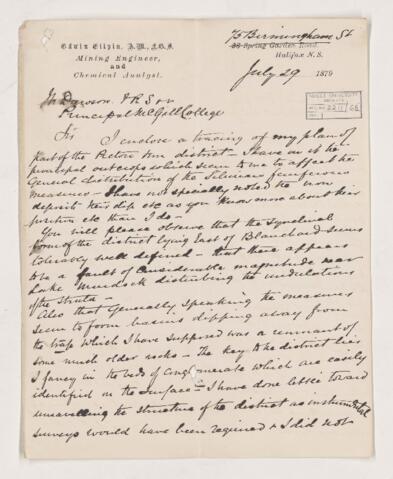 Edwin Gilpin, A.M., F.G.S.
Mining Engineer,
and
Chemical Analyst.
75 Birmingham St
38 Spring Garden Road.
Halifax N.S.
July 29 1879
Dawson F R S
Principal McGill College
Sir I enclose a tracing of my plan of
part of the Pictou Iron district - I have on it the
principal outcrops which seem to me to affect the
General distribution of the Silurian ferriferous
measures - I have not specially noted the iron
deposits their dip etc as you know more about their
position etc than I do -
You will please observe that the synclinal
form of the district lying East of Blanchard seems
tolerably well defined - that there appears
to be a fault of considerable magnitude near
Lake Murdock disturbing the undulations
of the strata -
Also that Generally speaking the measures
seem to form basins dipping away from
the trap which I have supposed was a remnant of
some much older rocks - The key to the district lies
I fancy in the beds of conglomerate which are easily
identified on the surface - I have done little toward
unravelling the structure of the district as instrumental
surveys would have been required & I did not